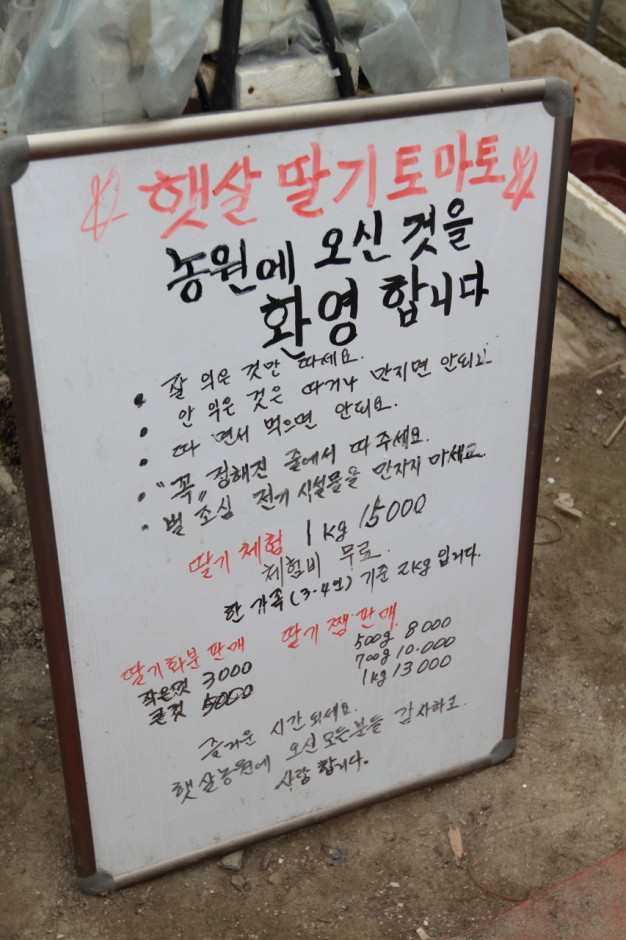 햇살 딸기토마토
농원에 오신 것을
환영 합니다
• 잘 익은 것만 따세요.
• 안 익은 것은 따거나 만지면 안되요
• 따 면서 먹으면 안되요.
• "꼭" 정해진 줄에서 따 주세요.
• 벌 조심 전기 시설물을 만지지 마세요
딸기 체험 1kg 15000
체험비 무료.
한 가족(3·4인) 기준 2kg 입니다.
딸기화분 판매
작은것 3000
큰것 5000
딸기 쨈 판매
500g 8000
700g 10.000
1kg 13000
즐거운 시간 되세요.
햇살농원에 오신 모든분들 감사하고
사랑 합니다.